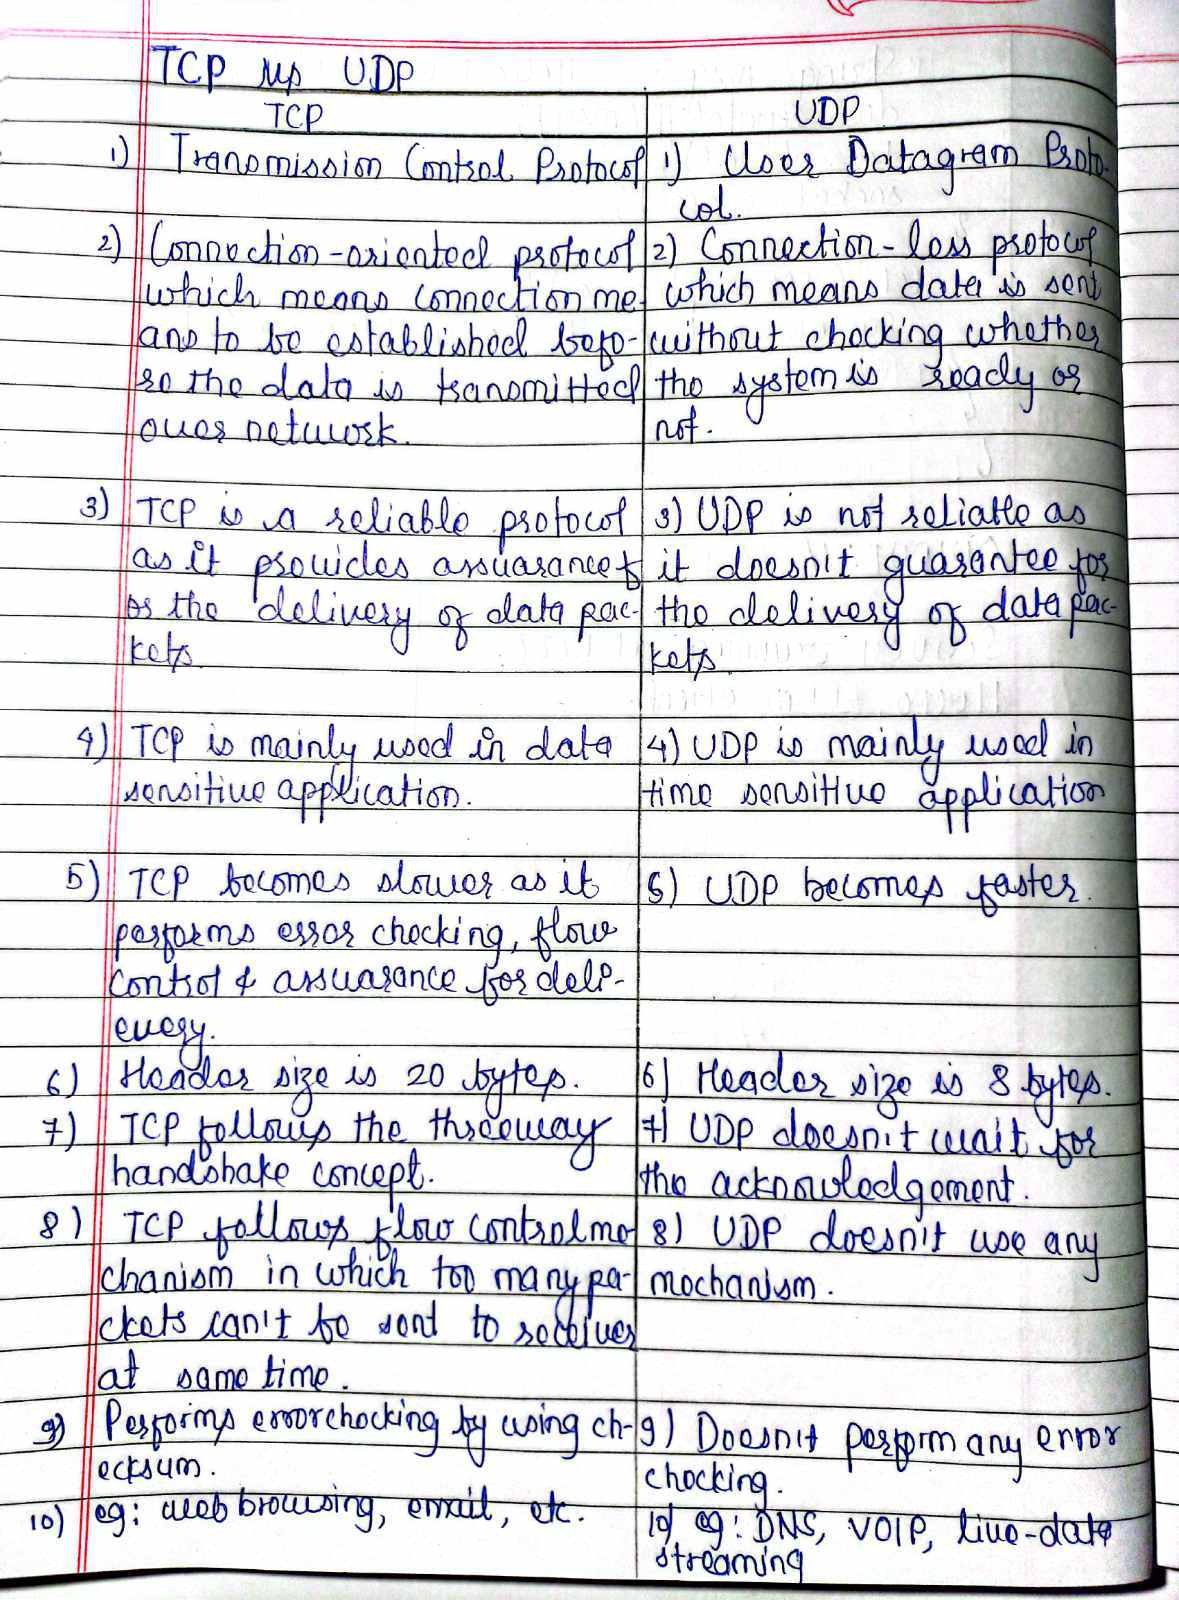 TCP vs UDP
TCP
UDP
1) Transmission Control Protocol
1) User Datagram Proto-
col.
2) Connection-oriented protocol
which means connection me-
ans to be established befo-
re the data is transmitted
over network.
2) Connection-less protocol
which means data is sent
without checking whether
the system is ready or
not.
3) TCP is a reliable protocol
as it provides assuarance f
or the delivery of data pac-
kets.
3) UDP is not reliable as
it doesn't guarantee for
the delivery of data pac-
kets.
4) TCP is mainly used in data
sensitive application.
4) UDP is mainly used in
time sensitive application
5) TCP becomes slower as it
performs error checking, flow
control & assuarance for deli-
every.
5) UDP becomes faster.
6) Header size is 20 bytes.
6) Header size is 8 bytes.
7) TCP follows the threeway
handshake concept.
7) UDP doesn't wait for
the acknowledgement.
8) TCP follows flow control me
chanism in which too many pa-
ckets can't be sent to receiver
at same time.
8) UDP doesn't use any
mechanism.
9) Performs error checking by using ch-
ecksum.
9) Doesn't perform any error
checking.
10) eg: web browsing, email, etc.
10) eg: DNS, VOIP, live-data
streaming